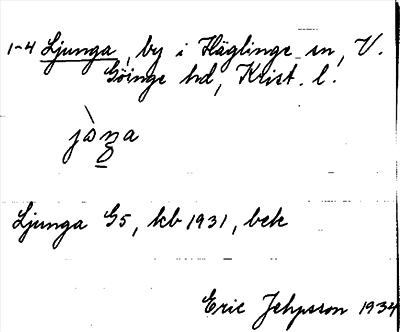 1-4 Ljunga, by i Häglinge sn, V.
Göinge hd, Krist. l.
Ljunga G5, kb 1931, bek
Eric Jehpsson 1934